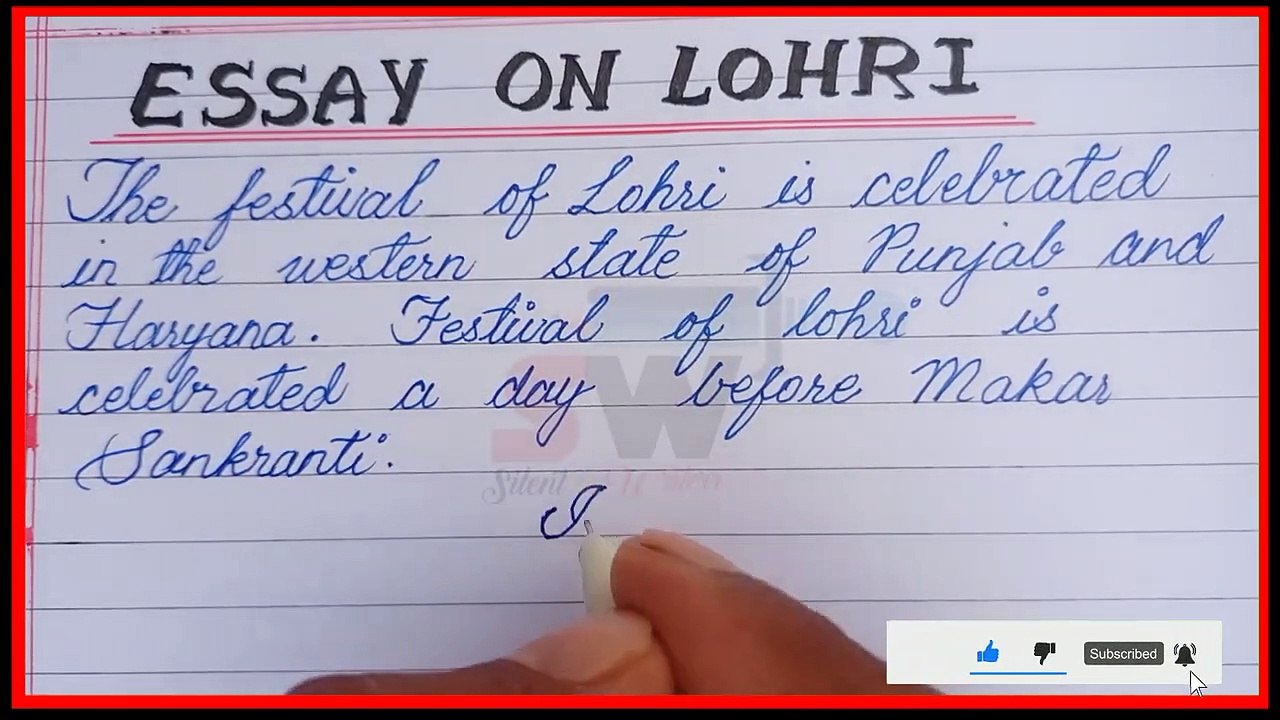 ESSAY ON LOHRI
The festival of Lohri is celebrated
in the western state of Punjab and
Haryana. Festival of lohri is
celebrated a day before Makar
Sankranti.
SW
Silent
I
Subscribed